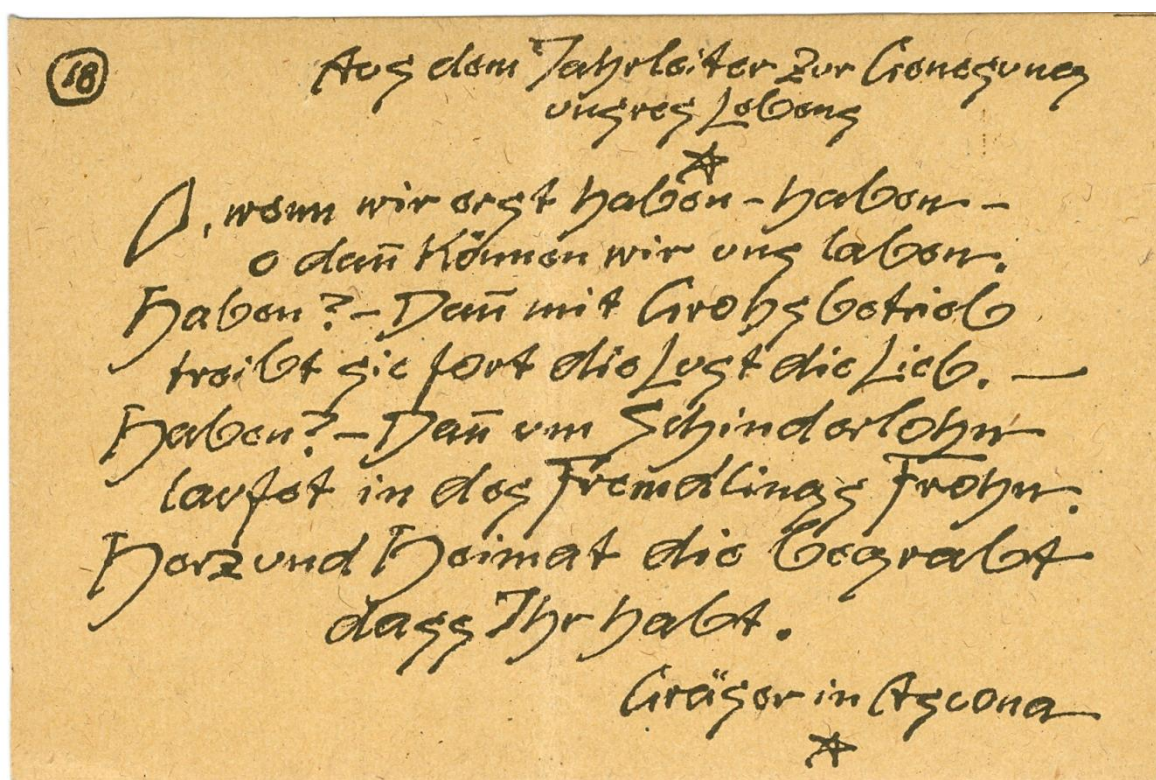 18
Aus dem Jahrleiter zur Genesung
unsres Lebens
O, wenn wir erst haben - haben -
o dan̄ können wir uns laben.
Haben? - Dan̄ mit Grohsbetrieb
treibt sie fort die Lust die Lieb. -
Haben? - Dan̄ um Schinderlohn
laufet in des Fremdlings Frohn.
Herz und Heimat die begrabt
dass Ihr habt.
Gräser in Ascona